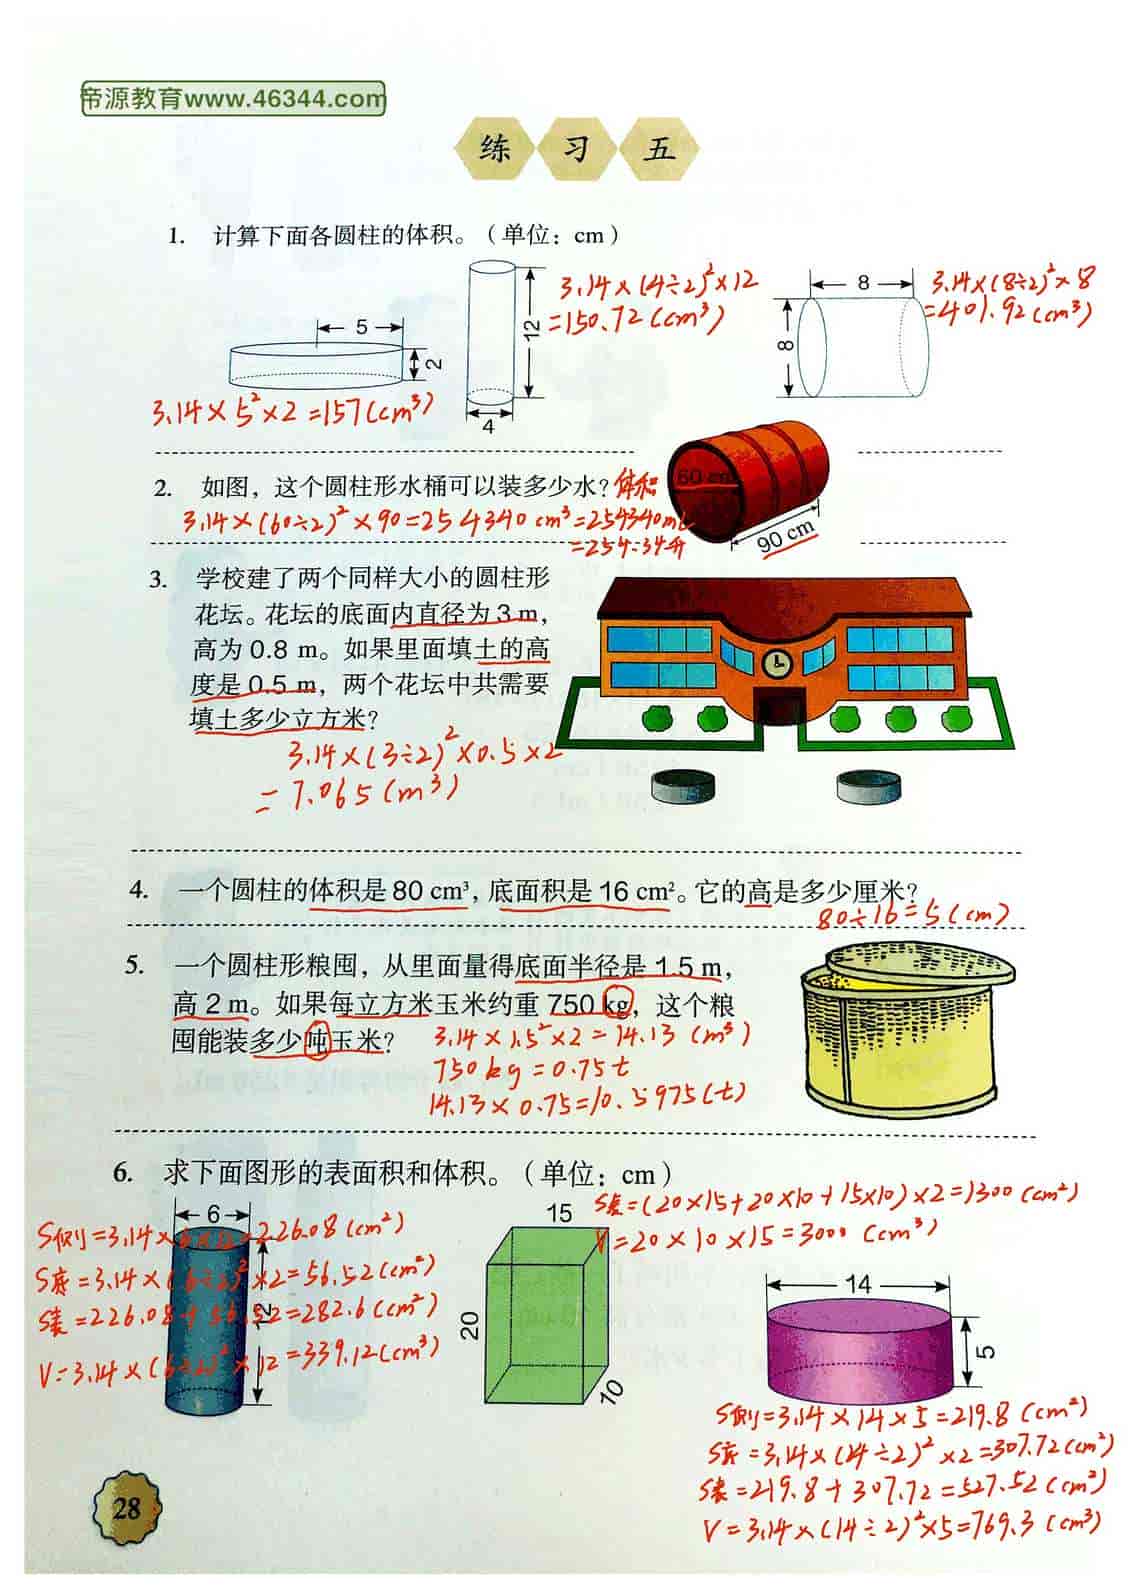 帝源教育www.46344.com
练 习 五
1. 计算下面各圆柱的体积。（单位：cm）
5
2
3.14×5²×2=157(cm³)
12
4
3.14×(4÷2)²×12
=150.72(cm³)
8
8
3.14×(8÷2)²×8
=401.92(cm³)
2. 如图，这个圆柱形水桶可以装多少水？体积
3.14×(60÷2)²×90=254340cm³=254340mL
=254.34升
60 cm
90 cm
3. 学校建了两个同样大小的圆柱形
花坛。花坛的底面内直径为 3 m，
高为 0.8 m。如果里面填土的高
度是 0.5 m，两个花坛中共需要
填土多少立方米？
3.14×(3÷2)²×0.5×2
=7.065(m³)
4. 一个圆柱的体积是 80 cm³，底面积是 16 cm²。它的高是多少厘米？
80÷16=5(cm)
5. 一个圆柱形粮囤，从里面量得底面半径是 1.5 m，
高 2 m。如果每立方米玉米约重 750 kg，这个粮
囤能装多少吨玉米？
3.14×1.5²×2=14.13(m³)
750kg=0.75t
14.13×0.75=10.5975(t)
6. 求下面图形的表面积和体积。（单位：cm）
6
12
S侧=3.14×6×12=226.08(cm²)
S底=3.14×(6÷2)²×2=56.52(cm²)
S表=226.08+56.52=282.6(cm²)
V=3.14×(6÷2)²×12=339.12(cm³)
15
20
10
S表=(20×15+20×10+15×10)×2=1300(cm²)
V=20×10×15=3000(cm³)
14
5
S侧=3.14×14×5=219.8(cm²)
S底=3.14×(14÷2)²×2=307.72(cm²)
S表=219.8+307.72=527.52(cm²)
V=3.14×(14÷2)²×5=769.3(cm³)
28